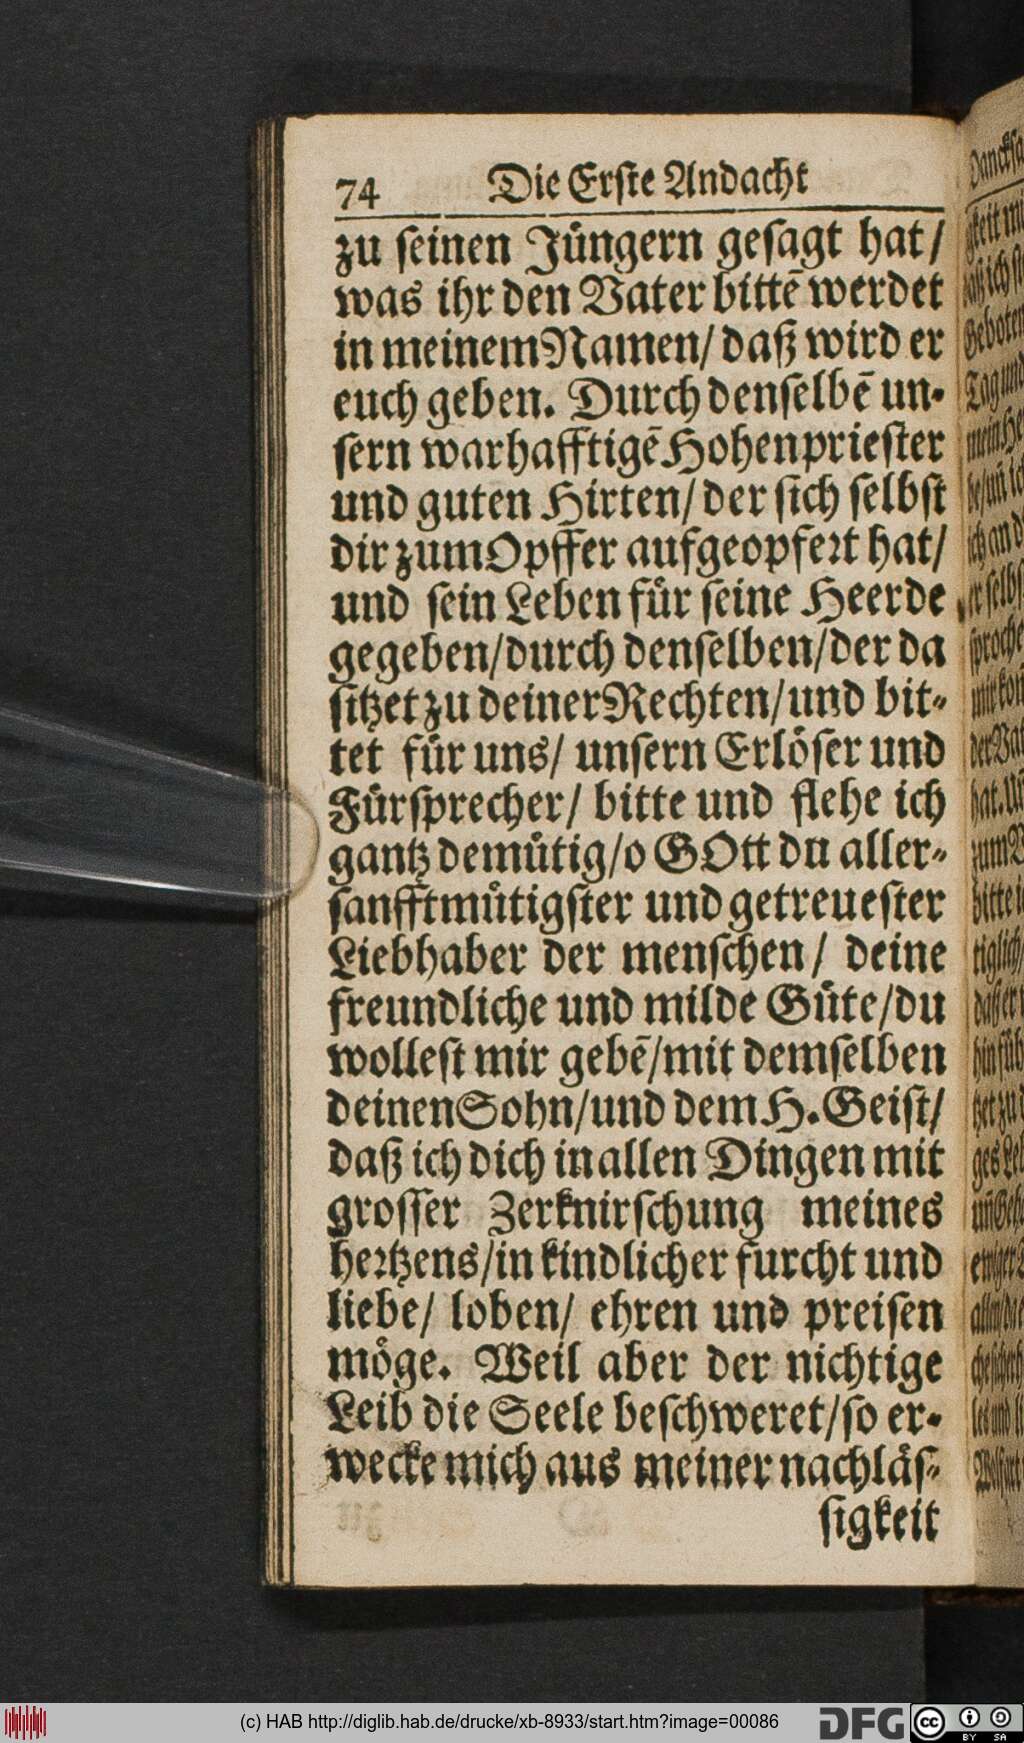 74 Die Erste Andacht
zu seinen Jüngern gesagt hat/
was ihr den Vater bittē werdet
in meinem Namen/ daß wird er
euch geben. Durch denselbē un-
sern warhafftigē Hohenpriester
und guten Hirten/ der sich selbst
dir zum Opffer aufgeopfert hat/
und sein Leben für seine Heerde
gegeben/durch denselben/der da
sitzet zu deiner Rechten/und bit-
tet für uns/ unsern Erlöser und
Fürsprecher/ bitte und flehe ich
gantz demütig/o GOtt du aller-
sanfftmütigster und getreuester
Liebhaber der menschen/ deine
freundliche und milde Güte/du
wollest mir gebē/mit demselben
deinen Sohn/und dem H. Geist/
daß ich dich in allen Dingen mit
grosser Zerknirschung meines
hertzens/in kindlicher furcht und
liebe/ loben/ ehren und preisen
möge. Weil aber der nichtige
Leib die Seele beschweret/so er-
wecke mich aus meiner nachläs-
sigkeit
(c) HAB http://diglib.hab.de/drucke/xb-8933/start.htm?image=00086
DFG
cc BY SA